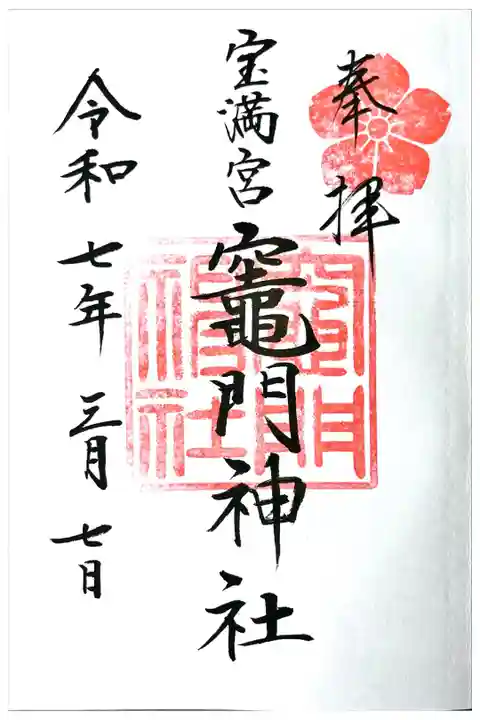 奉拝
宝満宮
竈門神社
竈門神社
令和七年三月七日